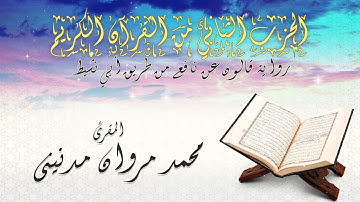 الحزب الثاني من القرآن الكريم
رواية قالون عن نافع من طريق أبي نشيط
المقرئ
محمد مروان مدنيني